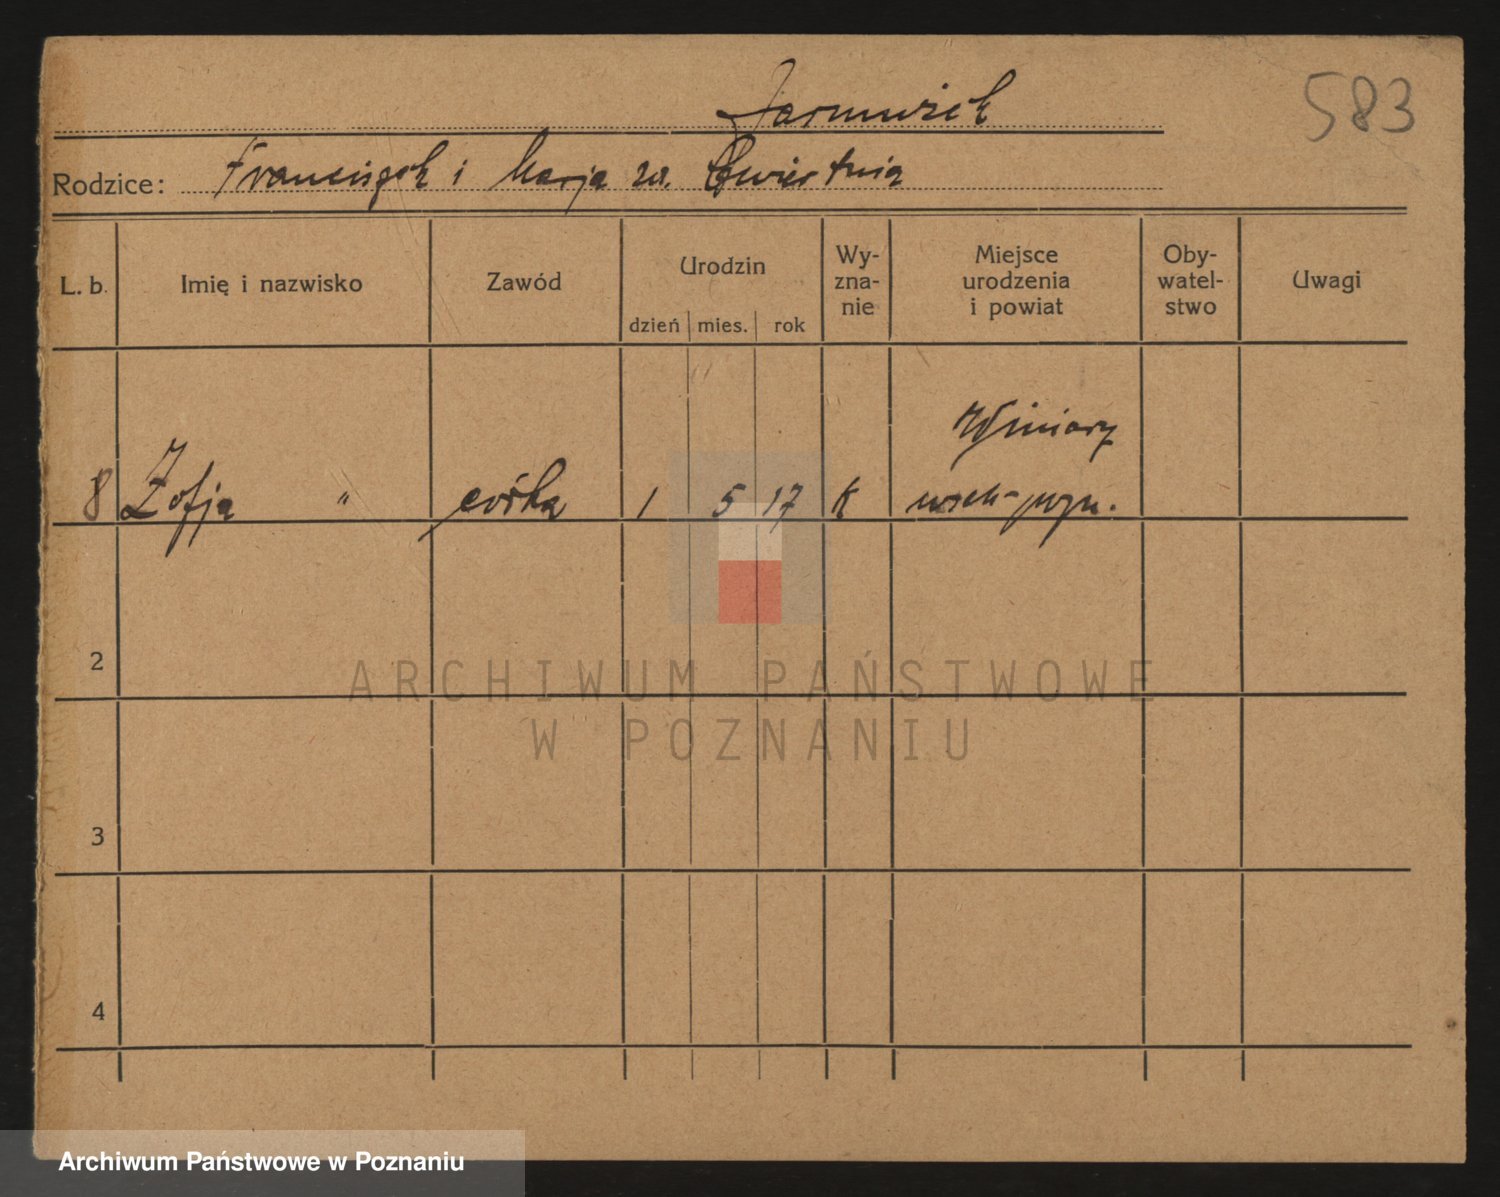 583
Jarmużek
Rodzice: Franciszek i Marja zd. Ćwiertnia
L. b. Imię i nazwisko Zawód Urodzin dzień mies. rok Wy-zna-nie Miejsce urodzenia i powiat Oby-watel-stwo Uwagi
Winiary
8 Zofja " córka 1 5 17 k
2
3
4
ARCHIWUM PAŃSTWOWE
W POZNANIU
Archiwum Państwowe w Poznaniu